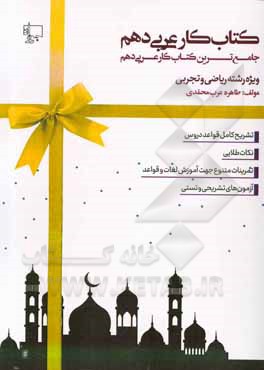 کتاب کار عربی دهم
جامع ترین کتاب کار عربی دهم
ویژه رشته ریاضی و تجربی
مولف: طاهره عرب محمدی
تشریح کامل قواعد دروس
نکات طلایی
تمرینات متنوع جهت آموزش لغات و قواعد
آزمون‌های تشریحی و تستی
خانه کتاب